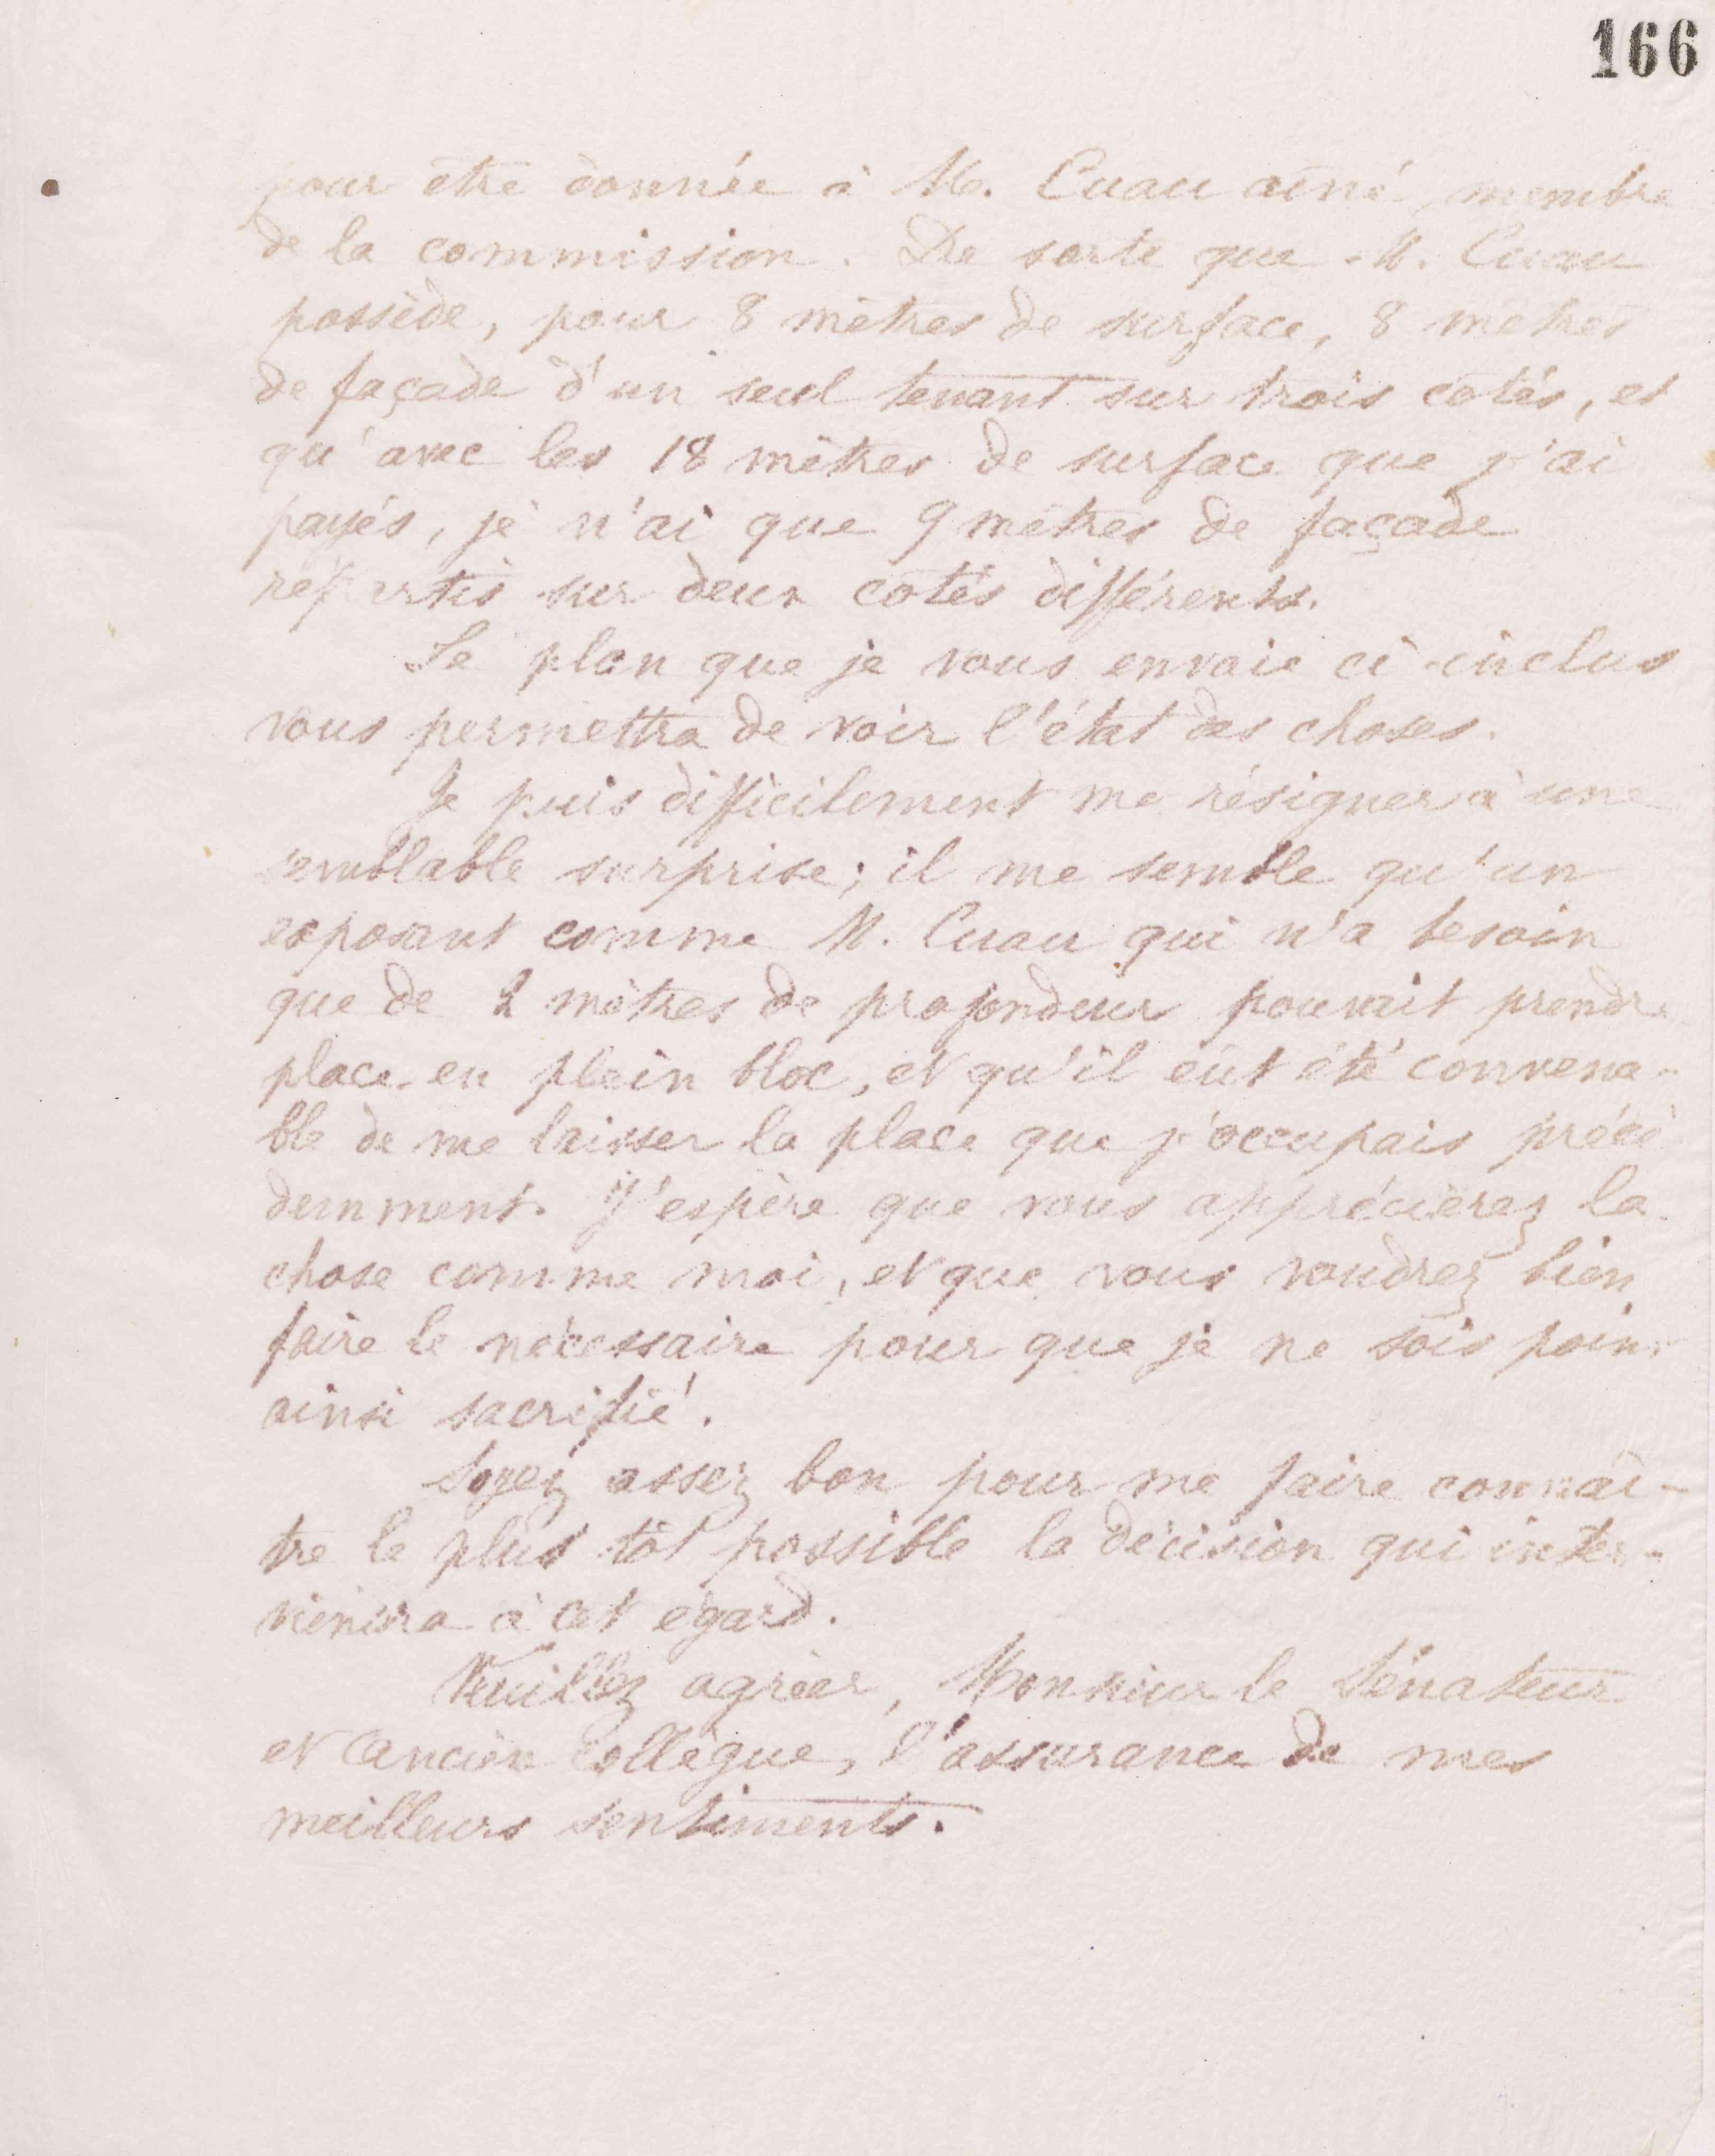 166
pour être donnée à M. Cuau aîné membre
de la commission. De sorte que M. Cuau
possède, pour 8 mètres de surface, 8 mètres
de façade d'un seul tenant sur trois cotés, et
qu'avec les 18 mètres de surface que j'ai
payés, je n'ai que 9 mètres de façade
répartis sur deux cotés différents.
Le plan que je vous envoie ci-inclus
vous permettra de voir l'état des choses.
Je puis difficilement me résigner à une
semblable surprise; il me semble qu'un
exposant comme M. Cuau qui n'a besoin
que de 2 mètres de profondeur pouvait prendre
place en plein bloc, et qu'il eût été convena-
ble de me laisser la place que j'occupais précé
demment. J'espère que vous apprécierez la
chose comme moi, et que vous voudrez bien
faire le nécessaire pour que je ne sois point
ainsi sacrifié.
Soyez assez bon pour me faire connaî-
tre le plus tôt possible la décision qui inter-
viendra à cet égard.
Veuillez agréer, Monsieur le Sénateur
et ancien collègue, l'assurance de mes
meilleurs sentiments.